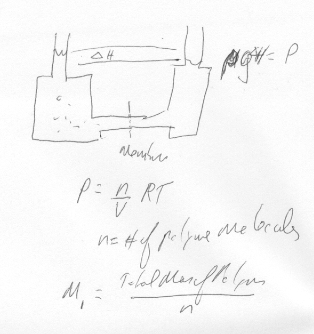 ΔH
ρgH = P
Membrane
P = n/V RT
n = # of polymer Molecules
M₁ = Total Mass of Polymer / n